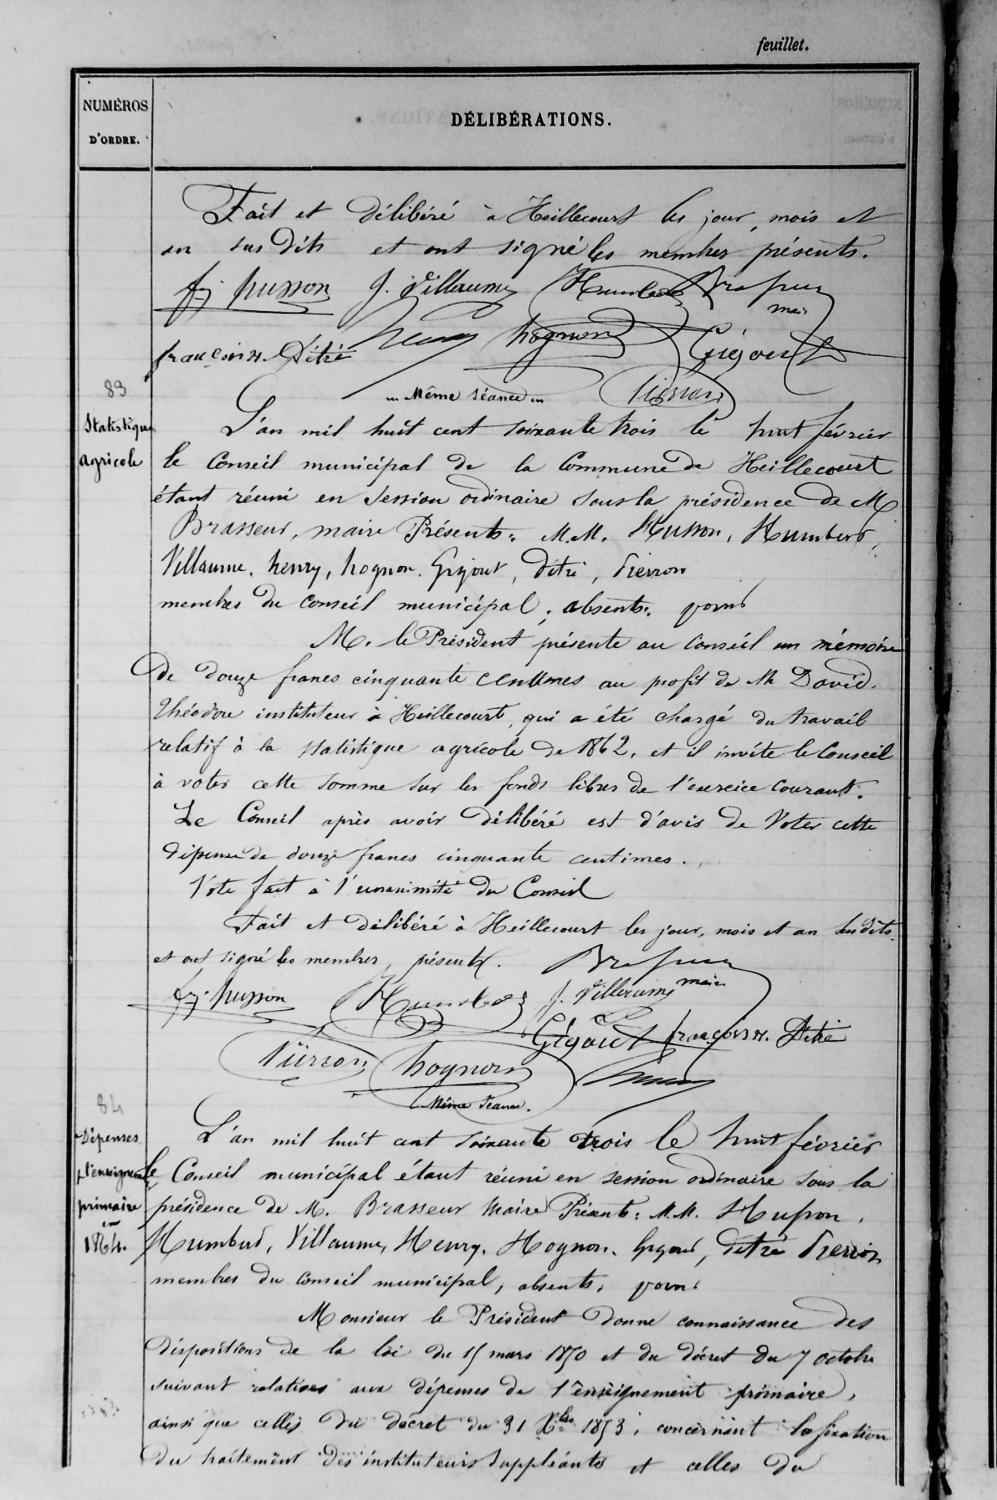 feuillet.
NUMÉROS
D'ORDRE.
DÉLIBÉRATIONS.
Fait et délibéré à Heillecourt les jour, mois et
an sus dits et ont signé les membres présents.
fs. husson J. Villaume Humbert Brasseur
maire
françois N. Détré henry hognon Gigout
Pierron
Même séance
83
Statistique
agricole
L'an mil huit cent soixante trois le huit février
le Conseil municipal de la Commune de Heillecourt
étant réuni en session ordinaire sous la présidence de M
Brasseur, maire Présents: M.M. Husson, Humbert,
Villaume, henry, hognon, Gigout, détré, Pierron
membres du conseil municipal, absents:
M. le Président présente au conseil un mémoire
de douze francs cinquante centimes au profit de Mr David,
Théodore instituteur à Heillecourt, qui a été chargé du travail
relatif à la statistique agricole de 1862, et il invite le Conseil
à voter cette somme sur les fonds libres de l'exercice courant.
Le Conseil après avoir délibéré est d'avis de voter cette
dépense de douze francs cinquante centimes.
Vote fait à l'unanimité du Conseil
Fait et délibéré à Heillecourt les jour, mois et an susdits
et ont signé les membres présents. Brasseur
maire
fs. husson Humbert J. Villaume
Gigout françois N. Détré
Pierron hognon henry
Même séance.
84
Dépenses
p. l'enseignemt
primaire
en
1864.
L'an mil huit cent soixante trois le huit février
le Conseil municipal étant réuni en session ordinaire sous la
présidence de M. Brasseur Maire Présents: M.M. Husson,
Humbert, Villaume, Henry, Hognon, Gigout, Détré Pierron
membres du conseil municipal, absents,
Monsieur le Président donne connaissance des
dispositions de la loi du 15 mars 1850 et du décret du 7 octobre
suivant relatives aux dépenses de l'enseignement primaire,
ainsi que celles du décret du 31 Xbre 1853, concernant la fixation
du traitement des instituteurs suppléants et celles du